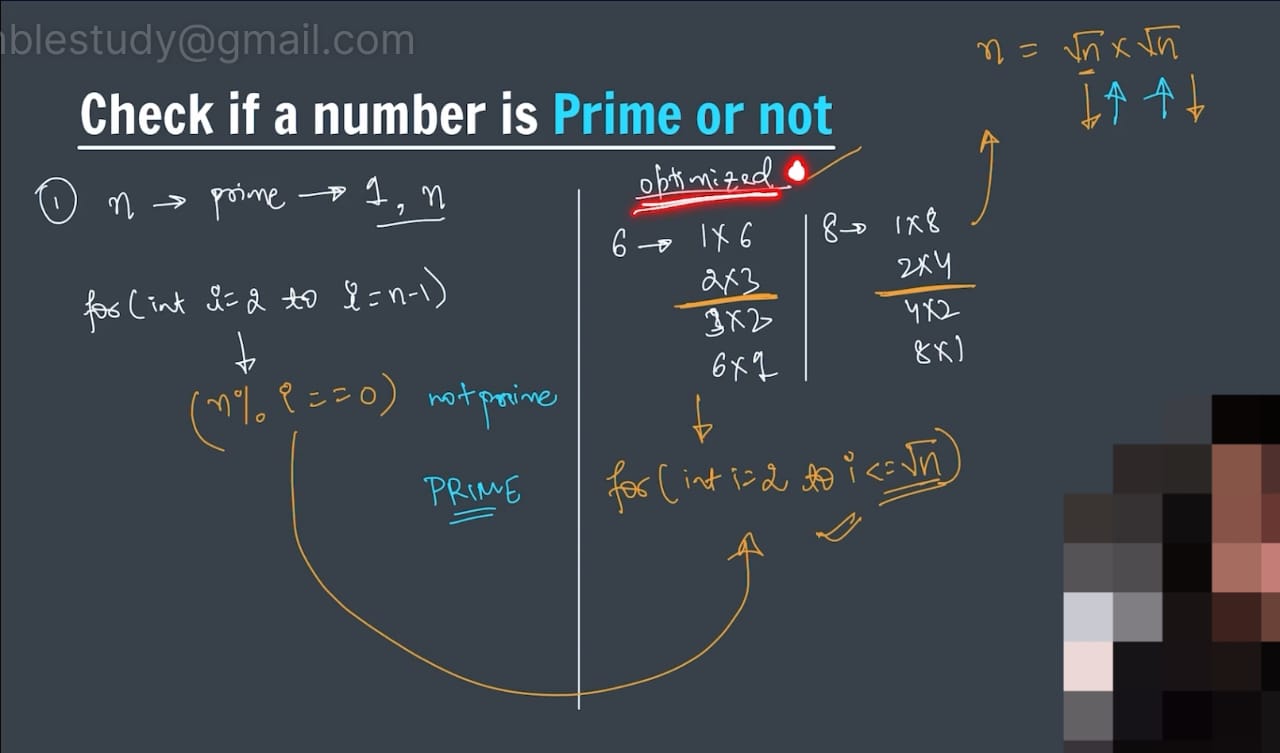 nblestudy@gmail.com
n = √n x √n
Check if a number is Prime or not
① n → prime → 1, n
for(int i=2 to i=n-1)
(n% i ==0) not prime
PRIME
optimized
6 → 1x6
2x3
3x2
6x1
8 → 1x8
2x4
4x2
8x1
for(int i=2 to i<=√n)